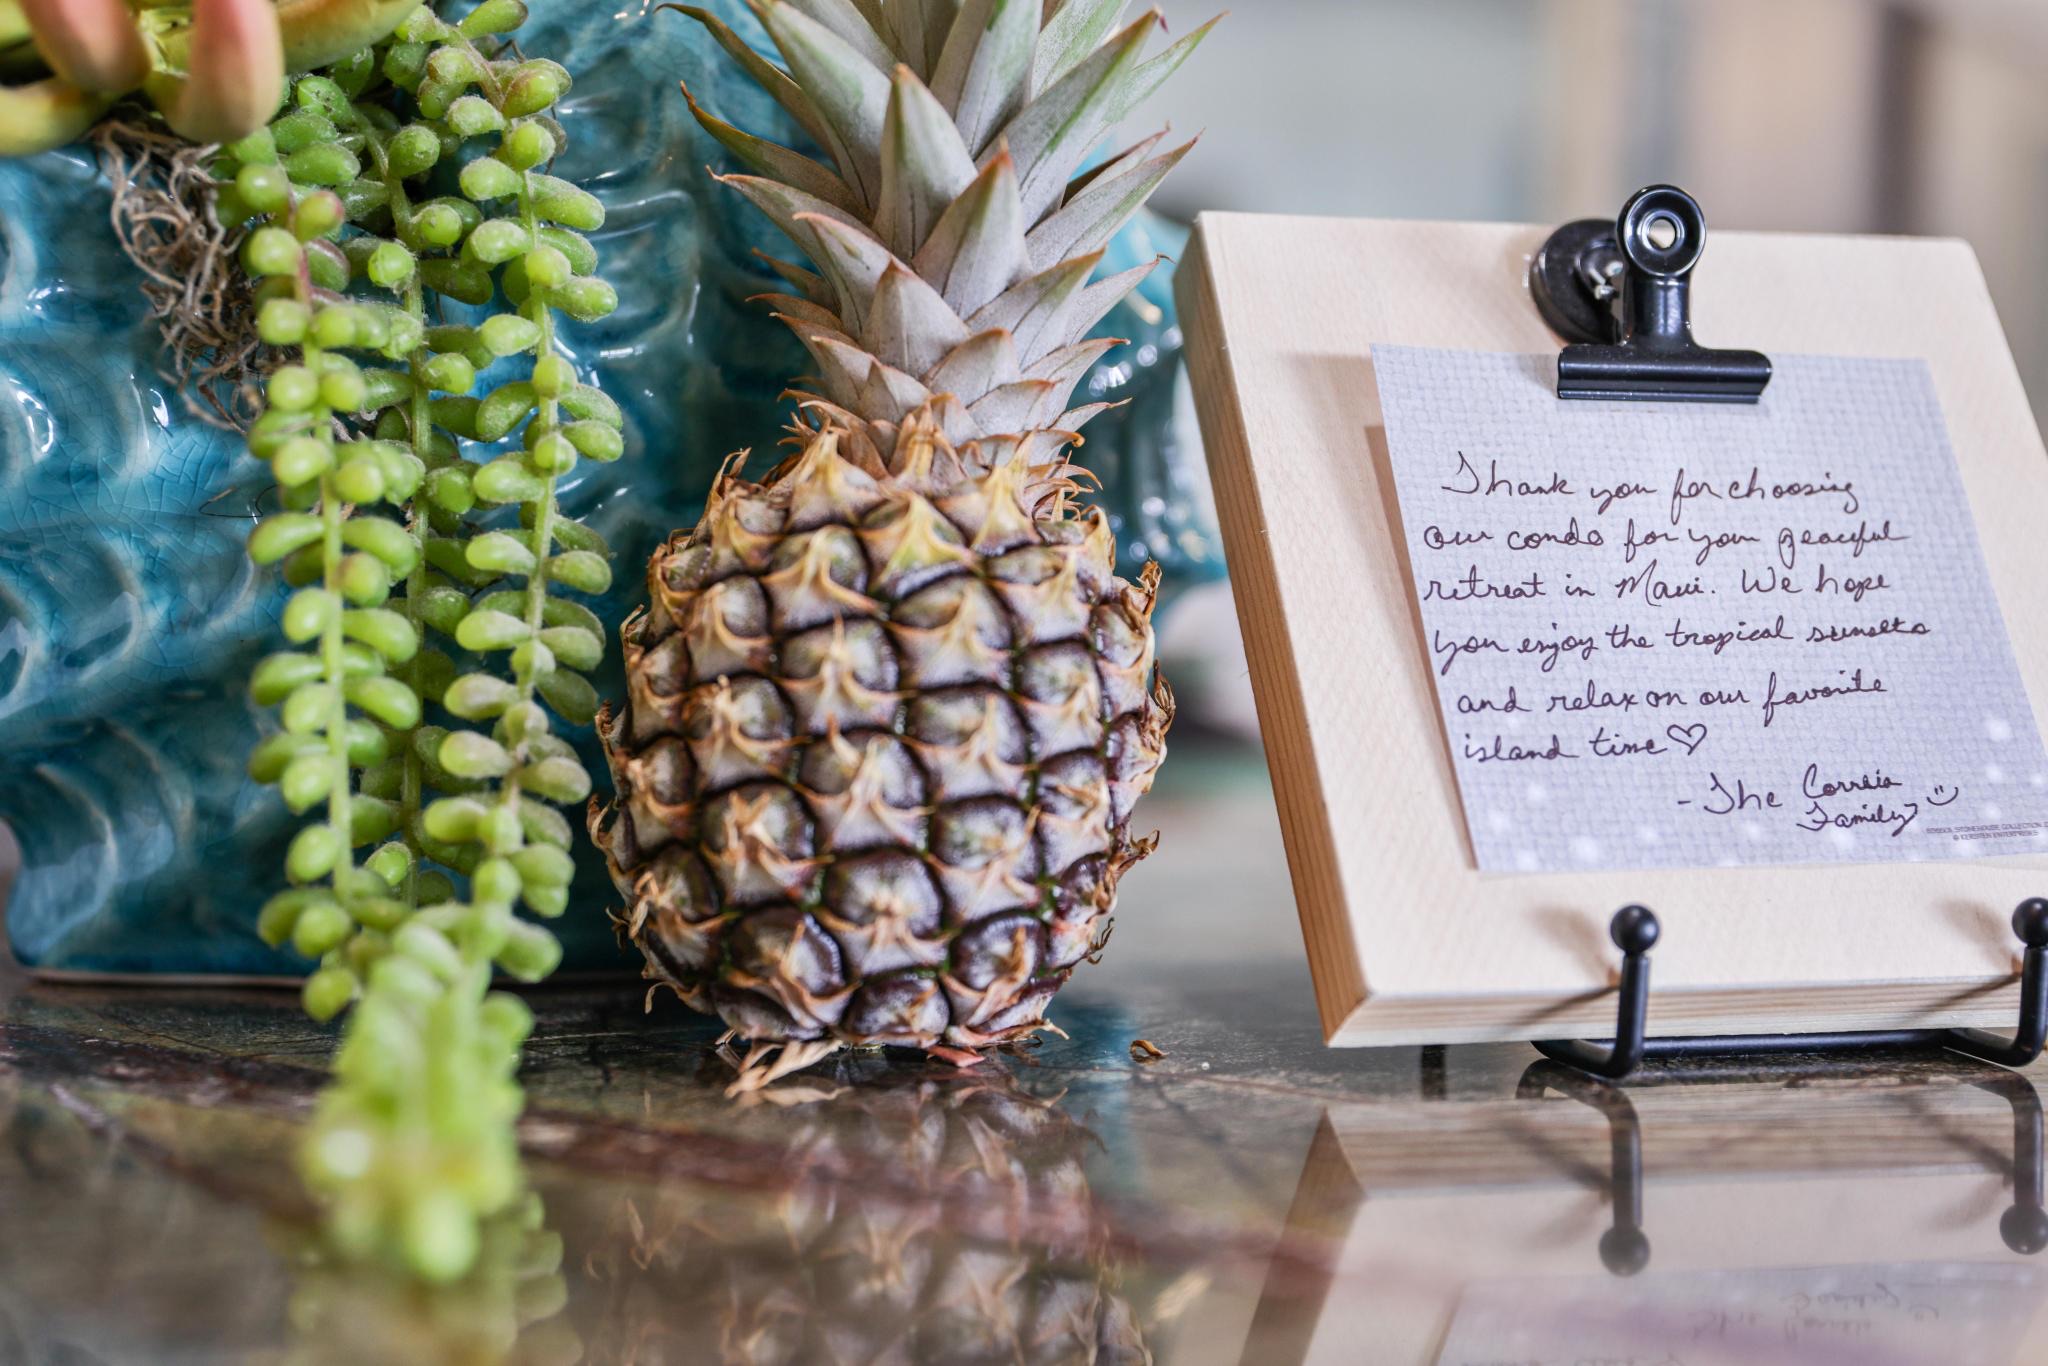 Thank you for choosing
our condo for your peaceful
retreat in Maui. We hope
you enjoy the tropical sunsets
and relax on our favorite
island time ♡
- The Correia
Family :)
© KERSTEN ENTERPRISES